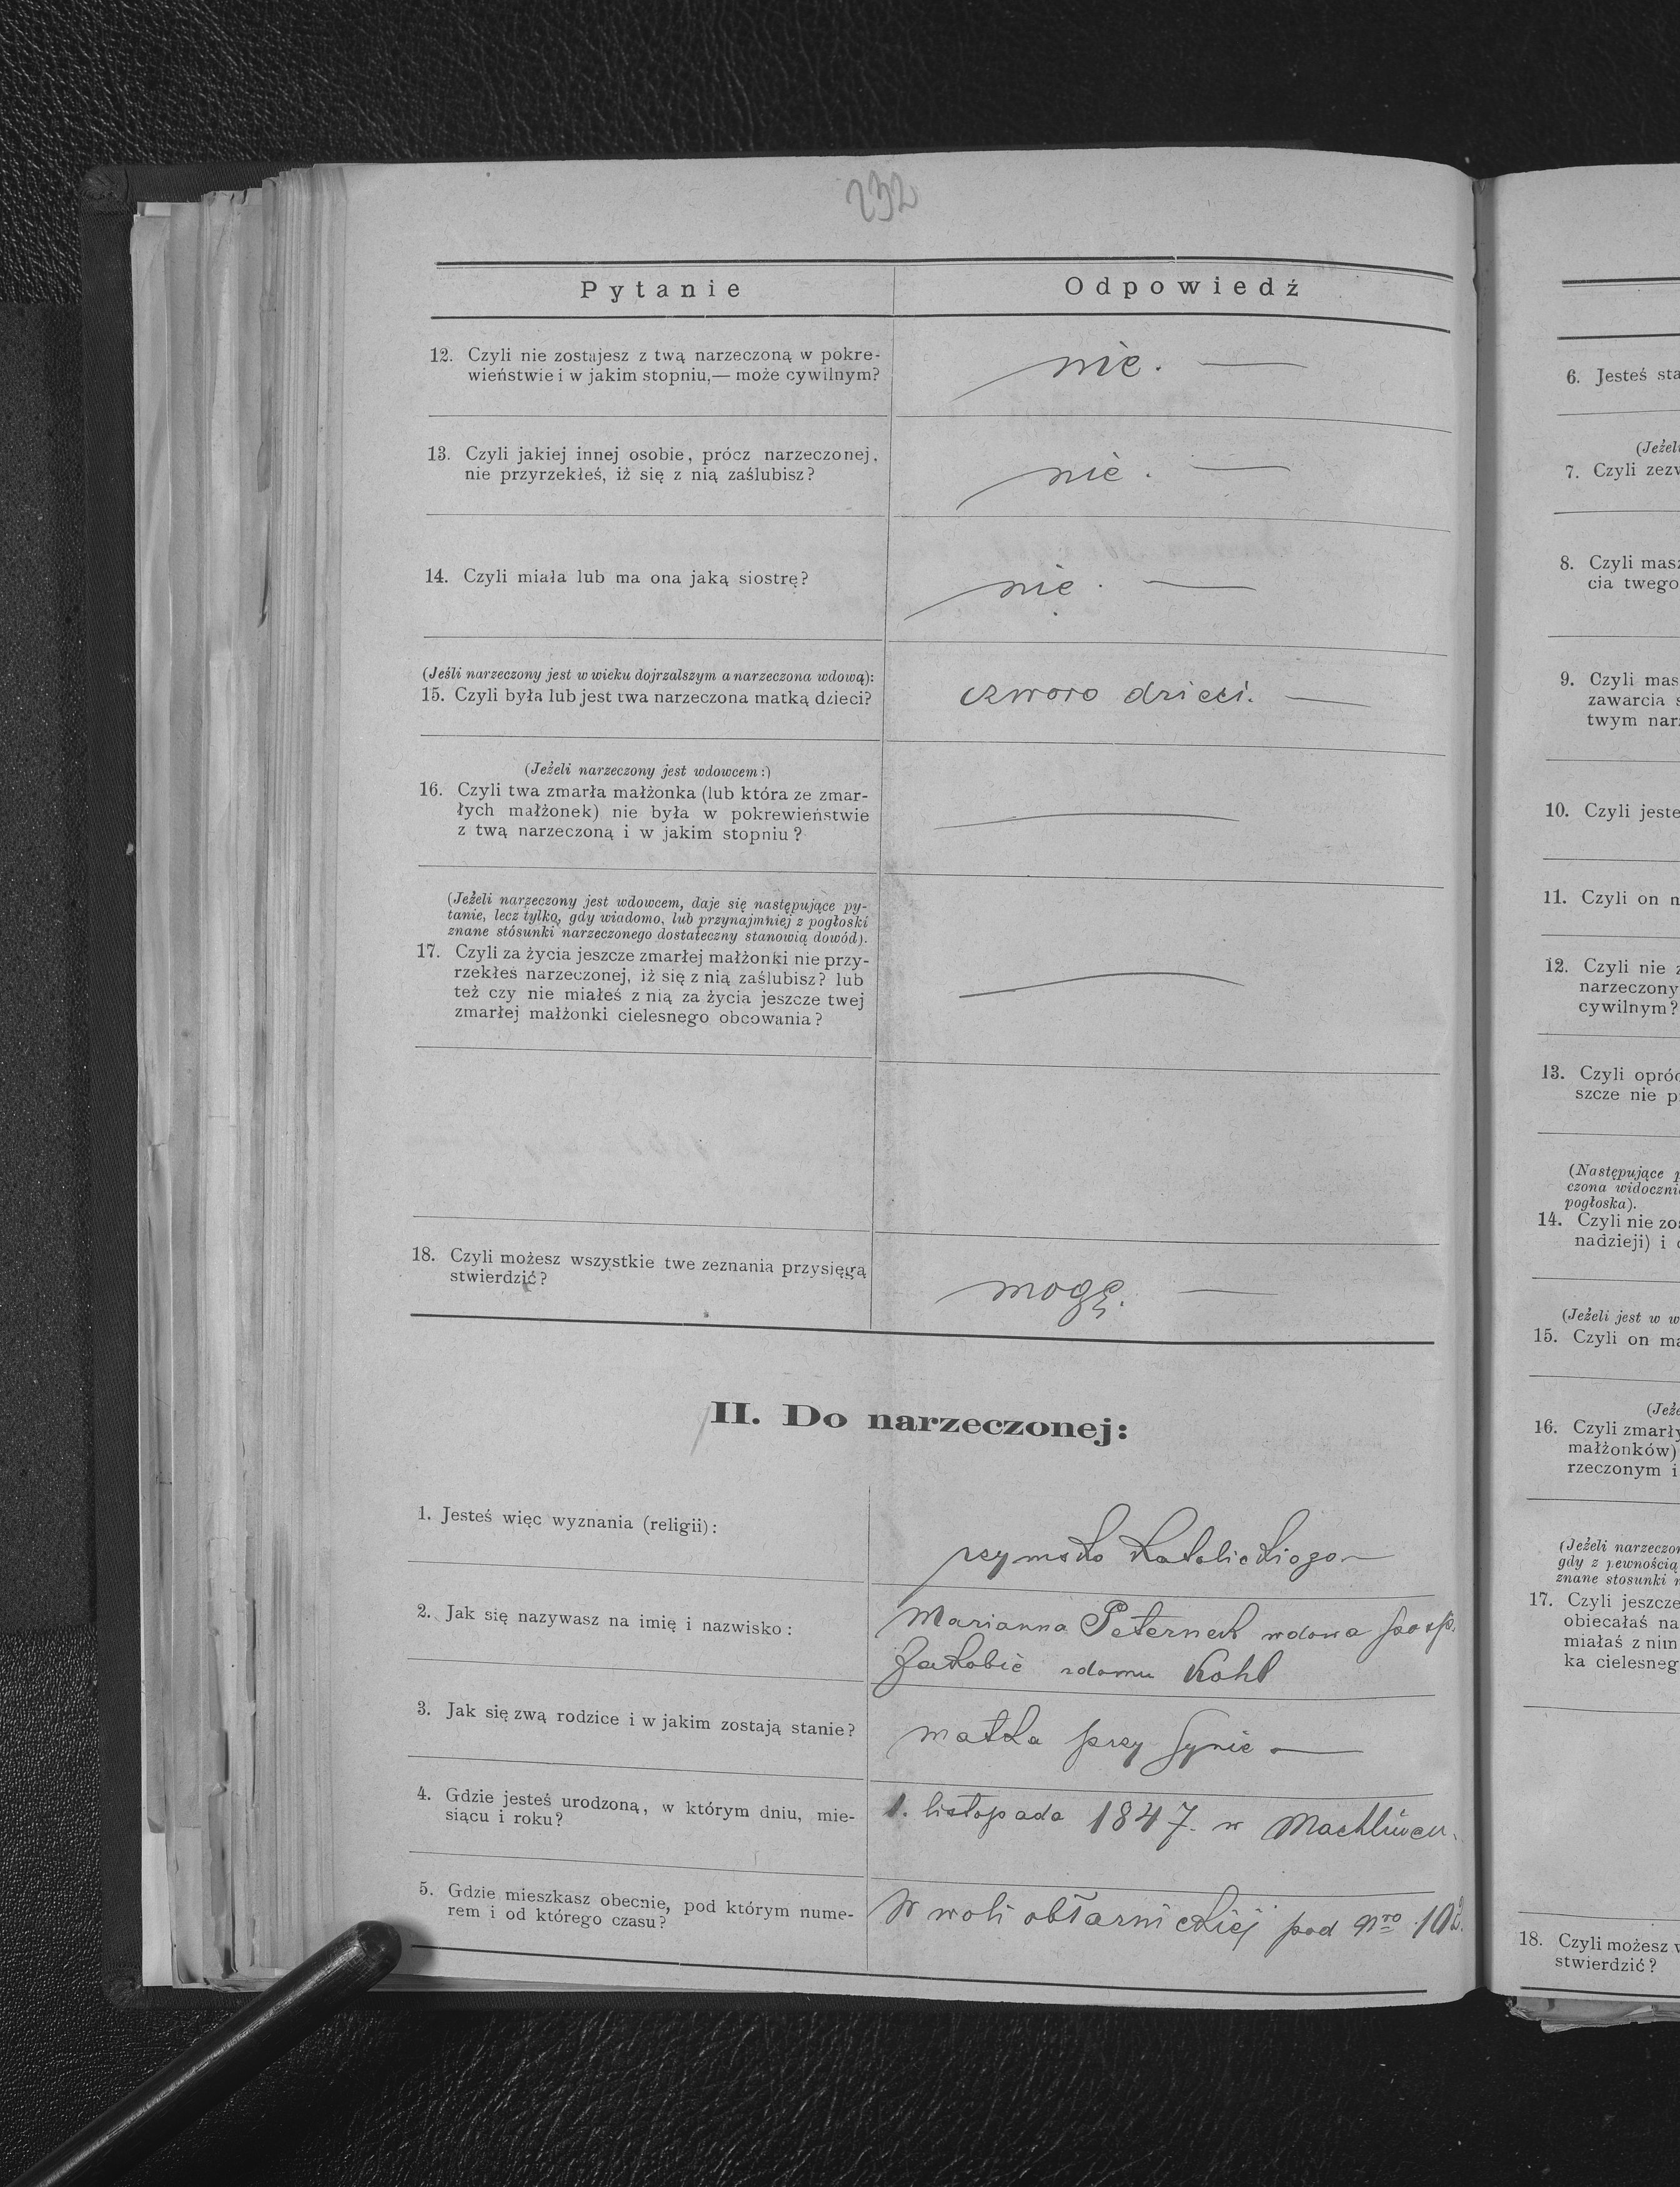 232
Pytanie
Odpowiedź
12. Czyli nie zostajesz z twą narzeczoną w pokre-
wieństwie i w jakim stopniu,— może cywilnym?
nie. —
13. Czyli jakiej innej osobie, prócz narzeczonej,
nie przyrzekłeś, iż się z nią zaślubisz?
nie. —
14. Czyli miała lub ma ona jaką siostrę?
nie. —
(Jeśli narzeczony jest w wieku dojrzalszym a narzeczona wdową):
15. Czyli była lub jest twa narzeczona matką dzieci?
czworo dzieci. —
(Jeżeli narzeczony jest wdowcem:)
16. Czyli twa zmarła małżonka (lub która ze zmar-
łych małżonek) nie była w pokrewieństwie
z twą narzeczoną i w jakim stopniu?
—
(Jeżeli narzeczony jest wdowcem, daje się następujące py-
tanie, lecz tylko, gdy wiadomo, lub przynajmniej z pogłoski
znane stósunki narzeczonego dostateczny stanowią dowód).
17. Czyli za życia jeszcze zmarłej małżonki nie przy-
rzekłeś narzeczonej, iż się z nią zaślubisz? lub
też czy nie miałeś z nią za życia jeszcze twej
zmarłej małżonki cielesnego obcowania?
—
18. Czyli możesz wszystkie twe zeznania przysięgą
stwierdzić?
mogę. —
II. Do narzeczonej:
1. Jesteś więc wyznania (religii):
rzymsko katolickiogo —
2. Jak się nazywasz na imię i nazwisko:
Marianna Peternek wdowa po sp.
Jakobie zdomu Kohl
3. Jak się zwą rodzice i w jakim zostają stanie?
matka przy synie —
4. Gdzie jesteś urodzoną, w którym dniu, mie-
siącu i roku?
1. listopada 1847. w Machlińcu.
5. Gdzie mieszkasz obecnie, pod którym nume-
rem i od którego czasu?
W woli obłarnickiej pod nro
6. Jesteś
(Jeżeli
7. Czyli
8. Czyli masz
cia twego
9. Czyli
zawarcia
twym
10. Czyli
11. Czyli on
12. Czyli nie
narzeczony
cywilnym?
13. Czyli
szcze nie
(Następujące
czona
pogłoska).
14. Czyli nie
nadzieji) i
(Jeżeli jest w
15. Czyli on
16. Czyli
małżonków)
rzeczonym i
(Jeżeli
gdy z pewnością
znane stosunki
17. Czyli jeszcze
obiecałaś
miałaś z nim
ka
18. Czyli możesz
stwierdzić?